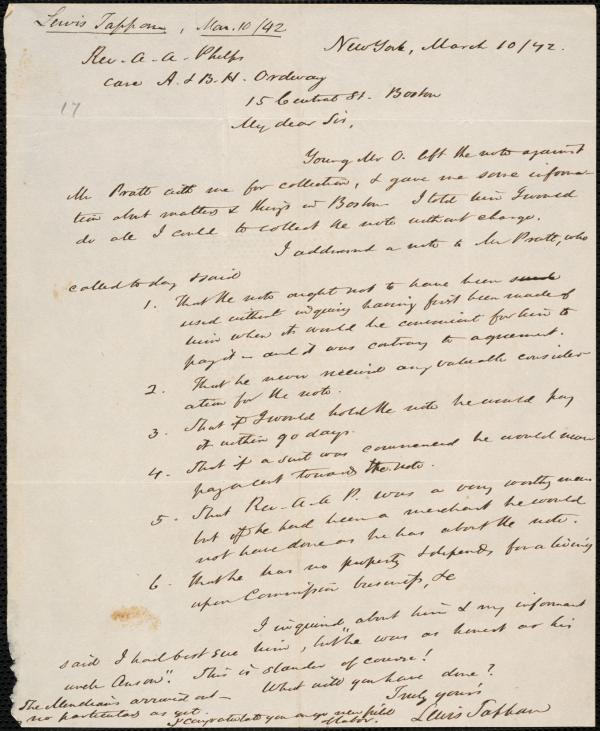 Lewis Tappan, Mar. 10/42
New York, March 10/42.
Rev. A. A. Phelps
care A. & B. H. Ordway
15 Central St. Boston
17
My dear Sir,
Young Mr O. left the note against
Mr Pratt with me for collection, & gave me some informa-
tion abt matters & things in Boston. I told him I would
do all I could to collect the note without charge.
I addressed a note to Mr Pratt, who
called to day & said
1. That the note ought not to have been sued
used without inquiry having first been made of
him when it would be convenient for him to
pay it – and it was contrary to agreement.
2. That he never received any valuable consider-
ation for the note.
3. That if I would hold the note he would pay
it within 90 days.
4. That if a suit was commenced he would never
pay a cent towards the note.
5. That Rev. A. A. P. was a very worthy man
but if he had been a merchant he would
not have done as he has about the note.
6. That he has no property & depends for a living
upon Commission business, &c
I inquired about him & my informant
said I had best sue him, but "he was as honest as his
uncle Anson." This is slander of course!
What will you have done?
The Mendians arrived out –
no particulars as yet.
Truly yours
I congratulate you on yr new field
of labor.
Lewis Tappan